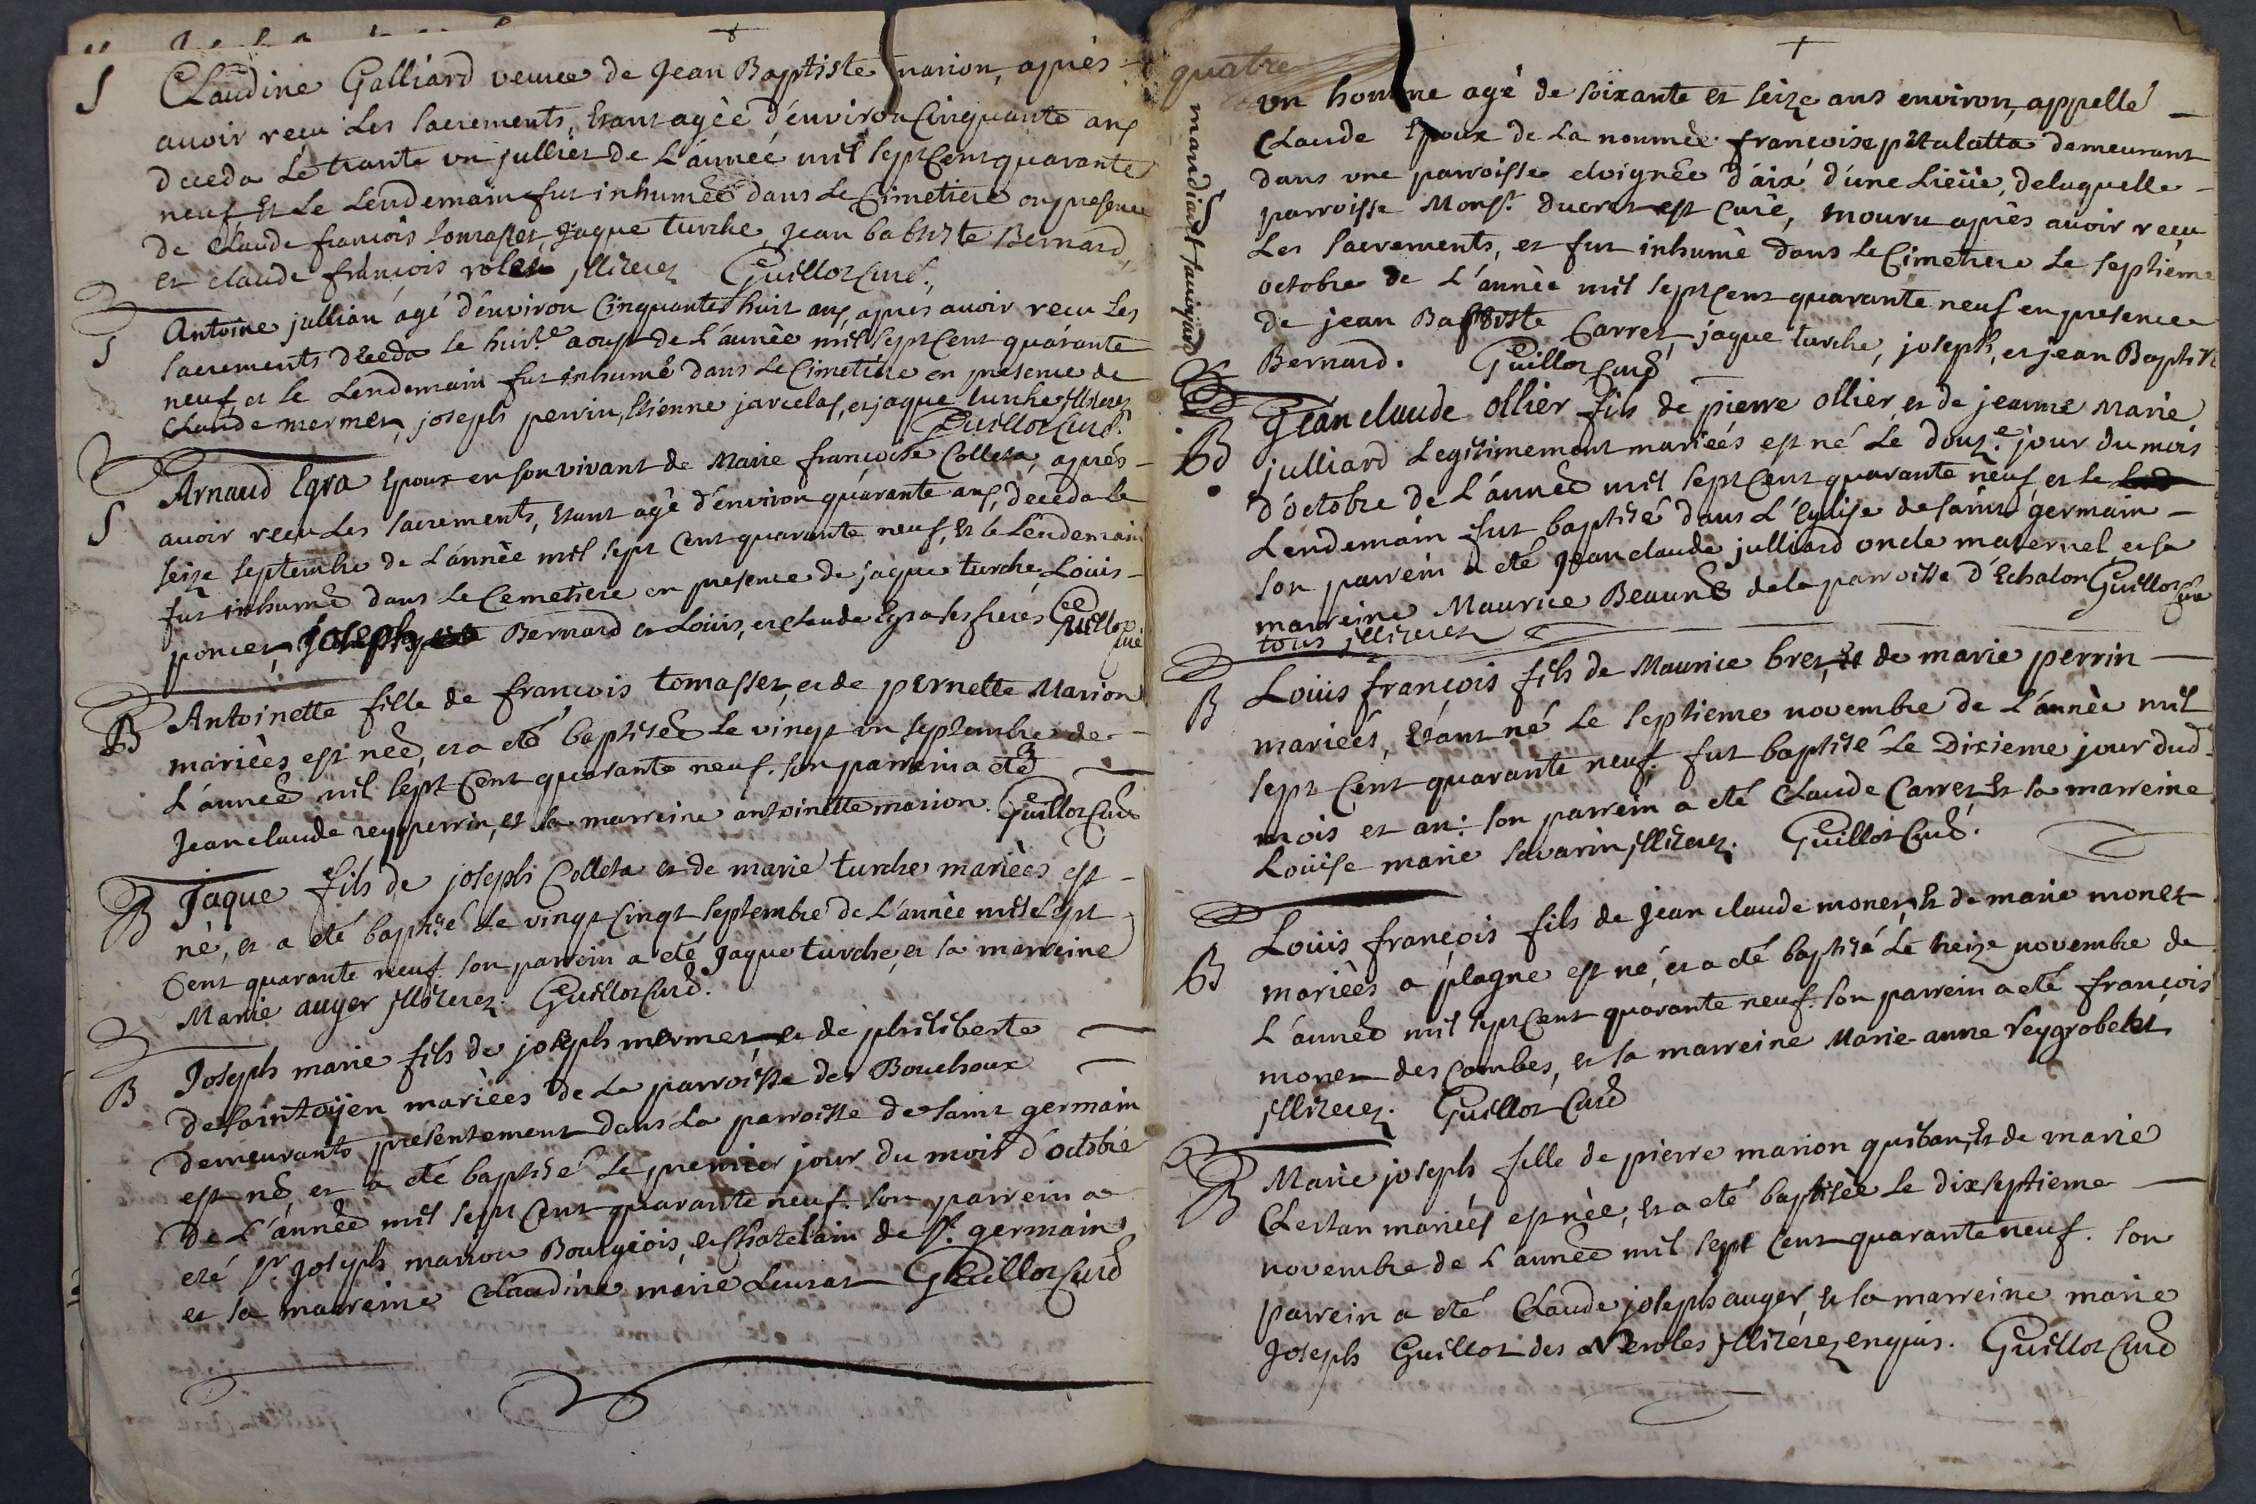 S
Claudine Galliard veuve de Jean Baptiste marion, après
avoir reçu Les sacrements, Etant agèe d'environ Cinquante ans
deceda Le trante un julliet de L'année mil sept Cent quarante
neuf Et Le Lendemain fut inhumée dans Le Cimetiere en presence
de Claude françois tomasset, Jaque turche, jean babtiste Bernard,
et claude françois rolet illiterez Guillot Curé.
S
Antoine jullian agé d'environ Cinquante huit ans, apres avoir recu Les
sacrements deceda le huit.e aoust de L'année mil sept Cent quarante
neuf et le Lendemain fut inhumé dans Le Cimetiere en presence de
Claude mermet, joseph perrin, Etienne jarcelas, et jaque turche illiterez
Guillot Curé.
S
Arnaud Egra Epoux en son vivant de Marie françoise Colleta, aprés
avoir recu Les sacrements, Etant agé d'environ quarante ans, deceda le
seize septembre de L'année mil sept Cent quarante neuf, Et le Lendemain
fut inhumé dans Le Cemetiere en presence de jaque turche, Louis
poncet, joseph Bernard et Louis, et claude Egra ses freres Guillot
Curé
B
Antoinette fille de francois tomasset, et de pernette Marion
mariées est neé, et a eté baptiseé Le vingt un septembre de
L'anneé mil sept Cent quarante neuf. son parrein a eté
Jean claude reyperrin, et la marreine antoinette marion. Guillot Curé
B
Jaque fils de joseph Colleta et de marie turche mariées est
né, et a eté baptisé Le vingt Cinqt septembre de L'année mil sept
Cent quarante neuf. son parrein a eté Jaque turche, et sa marreine
Marie auger illiterez. Guillot Curé.
B
Joseph marie fils de joseph mermet et de philiberte
de sointoÿen mariées de La parroisse des Bouchoux
demeurants présentement dans La parroisse de saint germain
est né, et a eté baptisé Le premier jour du mois d'octobre
de L'année mil sept Cent quarante neuf. son parrein a
eté sr. Joseph marion Bourgeois, et Chatelain de st. germain
et sa marreine Claudine marie Lensat Guillot Curé
quatre
mandiant savoijard
S
un homme agé de soixante et seize ans environ, appellé
Claude Epoux de La nommée francoise petalatta demeurant
dans une parroisse eloignée d'aix d'une Lieüe, de laquelle
parroisse Monsr. ducret est Curé, mouru aprés avoir reçu
Les sacrements, et fut inhumé dans Le Cimetiere Le septieme
octobre de L'année mil sept Cent quarante neuf en presence
de jean Baptiste Carret, jaque turche, joseph, et jean Baptiste
Bernard. Guillot Curé
B
Jean claude ollier fils de pierre ollier, et de jeanne Marie
julliard Legitimement mariéés est né Le douz.e jour du mois
d'octobre de L'année mil sept Cent quarante neuf, et le
Lendemain fut baptisé dans L'Eglise de saint germain
son parrein a eté Jean claude julliard oncle maternel et sa
marreine Maurice Beaune de la parroisse d'Echalon Guillot Curé
tous illiterez
B
Loüis françois fils de Maurice bret, Et de marie perrin
mariéés, Etant né Le septieme novembre de L'année mil
sept Cent quarante neuf, fut baptisé Le Dixieme jour dud.
mois et an: son parrein a eté Claude Carret Et sa marreine
Loüise marie savarin illiterez. Guillot Curé.
B
Loüis françois fils de Jean claude monet, Et de marie monet
mariéés a plagne est né, et a eté baptisé Le treize novembre de
L'année mil sept Cent quarante neuf. son parrein a eté françois
monet des Combes, et sa marreine Marie-anne reygrobelet
illiterez. Guillot Curé
B
Marie joseph fille de pierre marion quiban, Et de marie
Chertan mariées est née, Et a eté baptisée Le dixseptieme
novembre de L'année mil sept Cent quarante neuf. son
parrein a eté Claude joseph auger, Et la marreine marie
Joseph Guillot des Neroles illitérez enquis. Guillot Curé